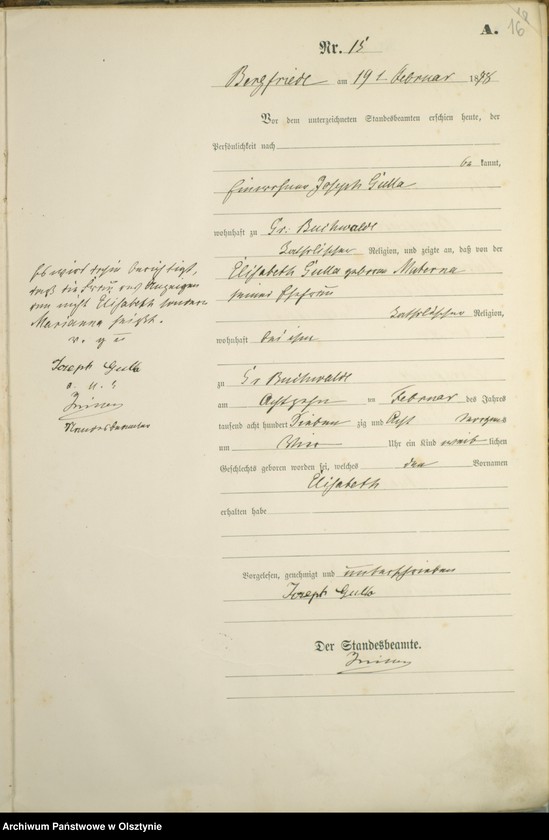 A.
16
Nr. 15
Bergfriede am 19t Februar 1878
Vor dem unterzeichneten Standesbeamten erschien heute, der
Persönlichkeit nach
be kannt,
Einwohner Joseph Gulla
wohnhaft zu Gr. Buchwalde
katholischer Religion, und zeigte an, daß von der
Elisabeth Gulla geborene Materna
seiner Ehefrau
katholischer Religion,
wohnhaft bei ihm
zu Gr Buchwalde
am Achtzehn ten Februar des Jahres
tausend acht hundert Sieben zig und Acht
um Vier Uhr ein Kind weib lichen
Geschlechts geboren worden sei, welches den Vornamen
Elisabeth
erhalten habe
Vorgelesen, genehmigt und unterschrieben
Joseph Gulla
Der Standesbeamte.
Es wird dahin berichtigt,
daß die Frau des Anzeigen
den nicht Elisabeth sondern
Marianna heißt.
v. g. u.
Joseph Gulla
Standesbeamter
Archiwum Państwowe w Olsztynie